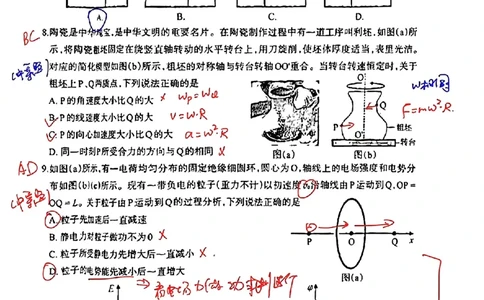 A. B. C. D.
BC 8.陶瓷是中华瑰宝,是中华文明的重要名片。在陶瓷制作过程中有一道工序叫利坯,如图(a)所
示,将陶瓷粗坯固定在绕竖直轴转动的水平转台上,用刀旋削,使坯体厚度适当,表里光洁。
对应的简化模型如图(b)所示,粗坯的对称轴与转台转轴OO'重合。当转台转速恒定时,关于
粗坯上P、Q两质点,下列说法正确的是
A. P的角速度大小比Q的大 × ωp=ωQ
B. P的线速度大小比Q的大 v=ω·R
C. P的向心加速度大小比Q的大 a=ω²·R
D. 同一时刻P所受合力的方向与Q的相同 ×
O'
Q
F=mω²·R.
P
粗坯
转台
O
图(a) 图(b)
AD 9.如图(a)所示,有一电荷均匀分布的固定绝缘细圆环,圆心为O,轴线上的电场强度和电势分
布如图(b)(c)所示。现有一带负电的粒子(重力不计)以初速度v₀沿轴线由P运动到Q,OP=
OQ=L。关于粒子由P运动到Q的过程分析,下列说法正确的是
A. 粒子先加速后一直减速
B. 静电力对粒子做功不为0 ×
C. 粒子所受静电力先增大后一直减小 ×
D. 粒子的电势能先减小后一直增大
P O Q x
图(a)
E φ